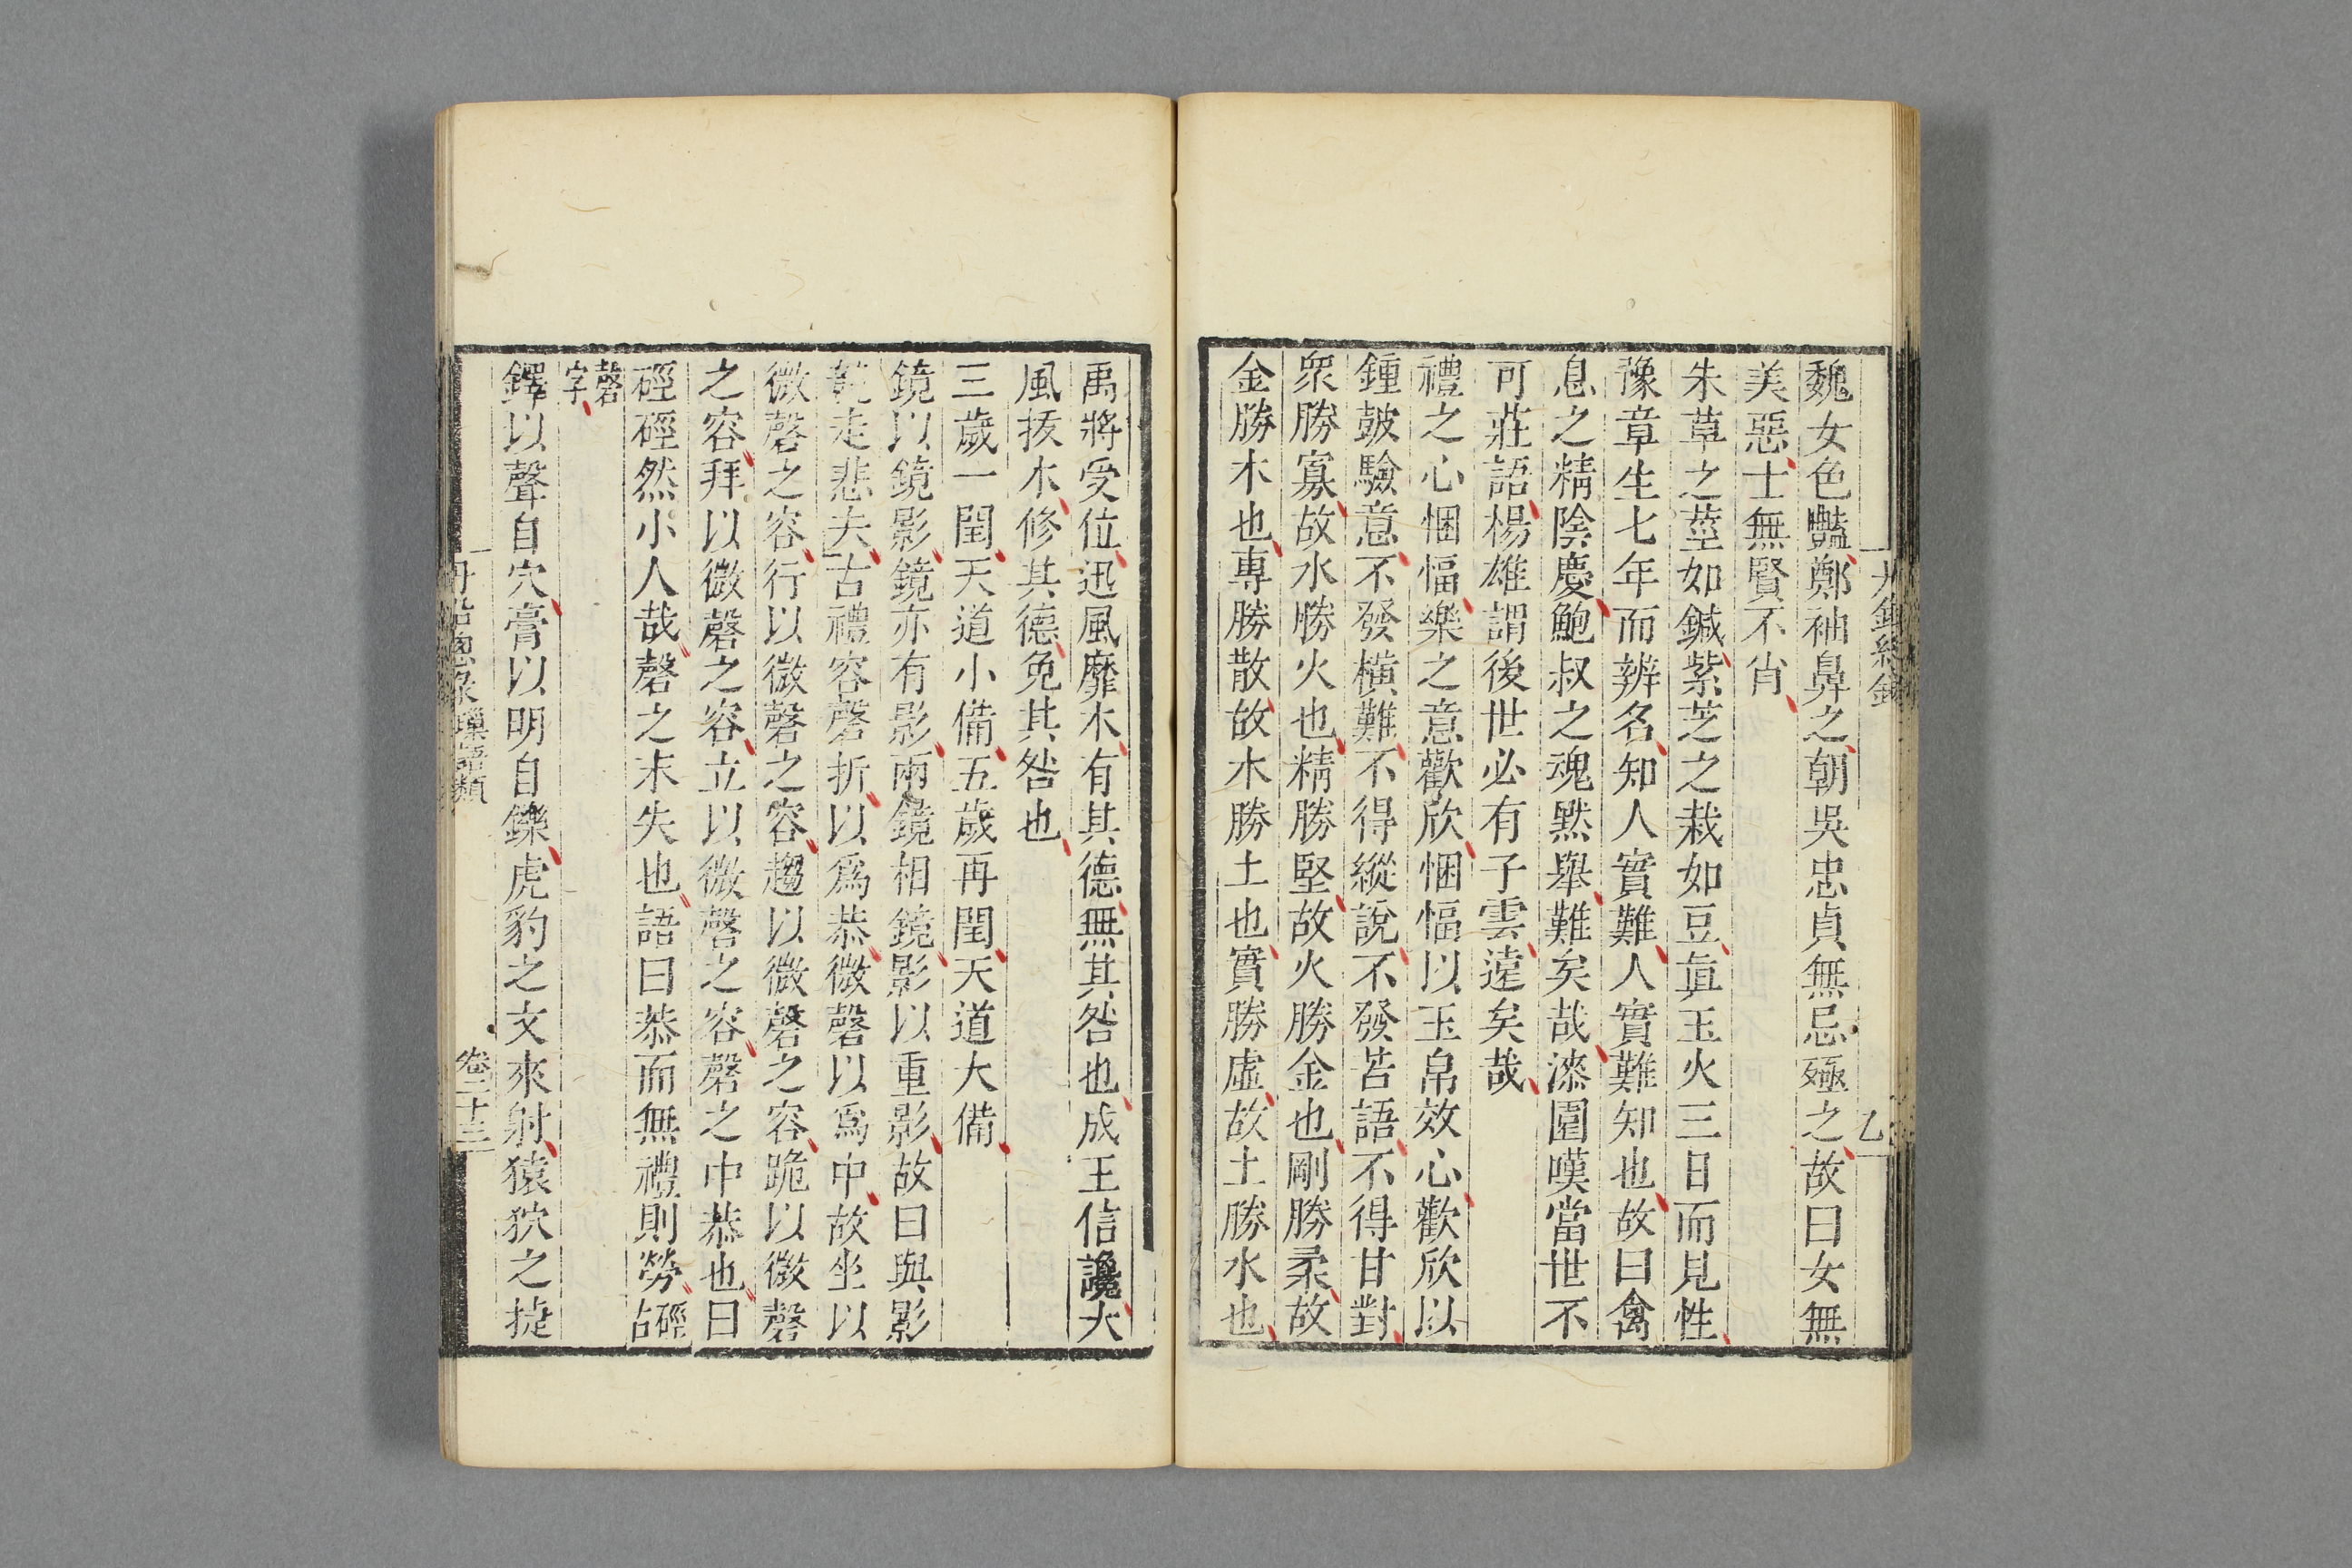 魏女色豔鄭袖鼻之朝吳忠貞無忌殛之故曰女無
美惡士無賢不肖
朱草之莖如鍼紫芝之栽如豆眞玉火三日而見性
豫章生七年而辨名知人實難人實難知也故曰禽
息之精陰慶鮑叔之魂黙舉難矣哉滌圄嘆當世不
可莊語楊雄謂後世必有子雲遠矣哉
禮之心悃愊樂之意歡欣悃愊以玉帛效心歡欣以
鍾皷驗意不發橫難不得縱說不發苦語不得甘對
衆勝寡故水勝火也精勝堅故火勝金也剛勝柔故
金勝木也專勝散故木勝土也實勝虛故土勝水也
禹將受位迅風靡木有其德無其咎也成王信讒大
風拔木修其德免其咎也
三歲一閏天道小備五歲再閏天道大備
鏡以鏡影鏡亦有影兩鏡相鏡影以重影故曰與影
走悲夫古禮容磬折以爲恭微磬以爲中故坐以
微磬之容行以微磬之容趨以微磬之容跪以微磬
之容拜以微磬之容立以微磬之容磬之中恭也曰
硜硜然小人哉磬之末失也語曰恭而無禮則勞硜古
磬字
鐸以聲自穴膏以明自鑠虎豹之文來射猿狖之捷
丹鉛總錄 瑣語類 卷二十三